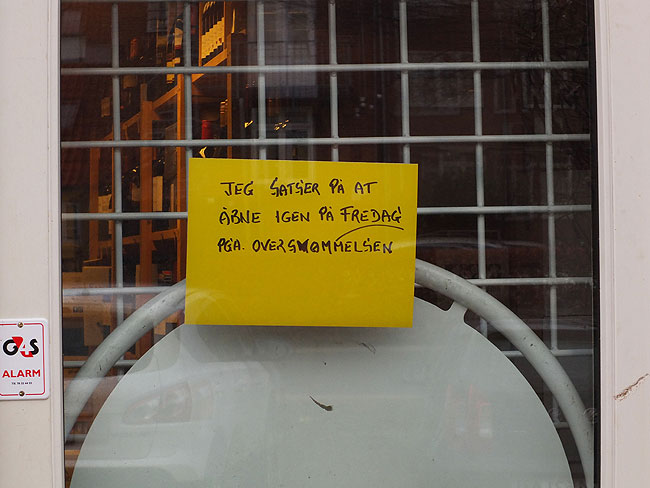 JEG SATSER PÅ AT
ÅBNE IGEN PÅ FREDAG
PGA. OVERSVØMMELSEN
G4S
ALARM